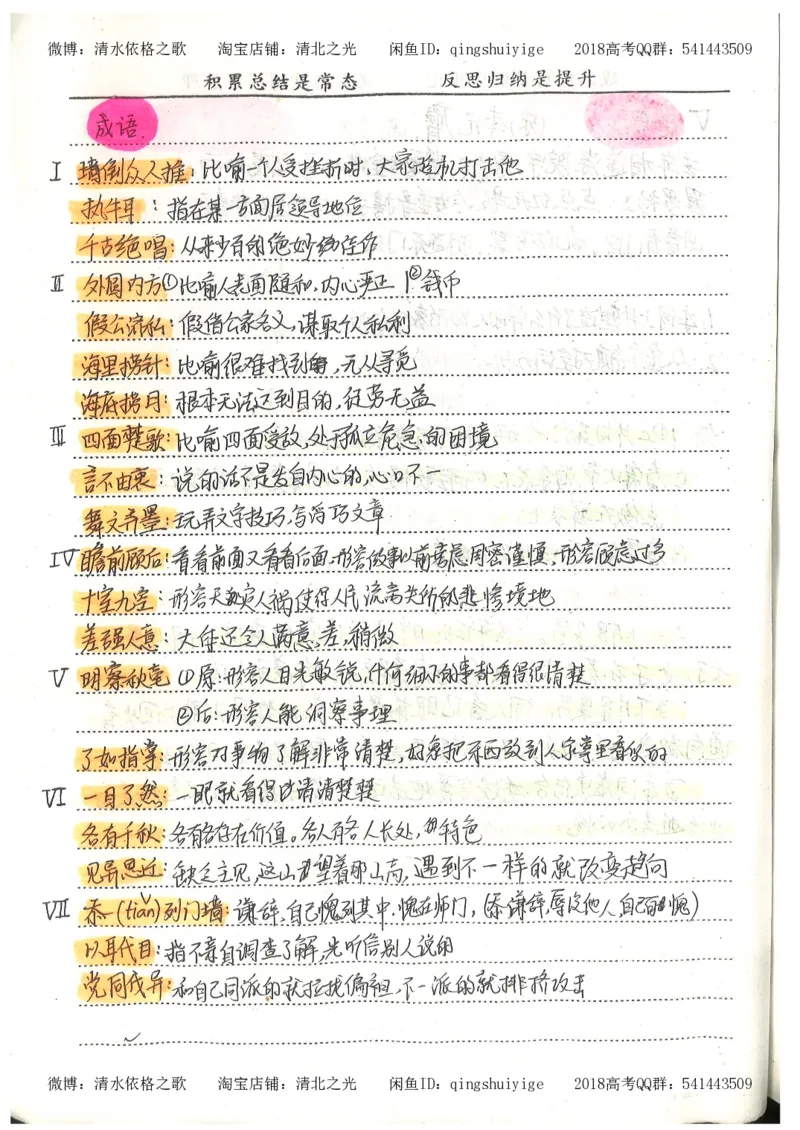 微博：清水依格之歌 淘宝店铺：清北之光 闲鱼ID：qingshuiyige 2018高考QQ群：541443509
积累总结是常态 反思归纳是提升
成语
I 墙倒众人推：比喻一个人受挫折时，大家趁机打击他
执牛耳：指在某一方面居领导地位
千古绝唱：从来少有的绝妙佳作
II 外圆内方①比喻人表面随和，内心严正 ②钱币
假公济私：假借公家名义，谋取个人私利
海里捞针：比喻很难找到，无从寻觅
海底捞月：根本无法达到目的，徒劳无益
III 四面楚歌：比喻四面受敌，处于孤立危急的困境
言不由衷：说的话不是发自内心的，心口不一
舞文弄墨：玩弄文字技巧，写巧文章
IV 瞻前顾后：看看前面又看看后面，形容做事以前考虑周密谨慎，形容顾忌过多
十室九空：形容天灾人祸使得人民流离失所的悲惨境地
差强人意：大体还令人满意，差，稍微
V 明察秋毫 ①原：形容人目光敏锐，任何细小的事都看得很清楚
②后：形容人能洞察事理
了如指掌：形容对事物了解非常清楚，好象把东西放到人家掌里看似的
VI 一目了然：一眼就看得清清楚楚
各有千秋：各有各存在价值。各人有各人长处，特色
见异思迁：缺乏主见，这山望着那山高，遇到不一样的就改变趋向
VII 忝(tiǎn)列门墙：谦辞，自己愧列其中，愧在师门，(忝谦辞，辱没他人，自己有愧)
以耳代目：指不亲自调查了解，光听信别人说的
党同伐异：和自己同派的就拉拢偏袒，不一派的就排挤攻击
微博：清水依格之歌 淘宝店铺：清北之光 闲鱼ID：qingshuiyige 2018高考QQ群：541443509